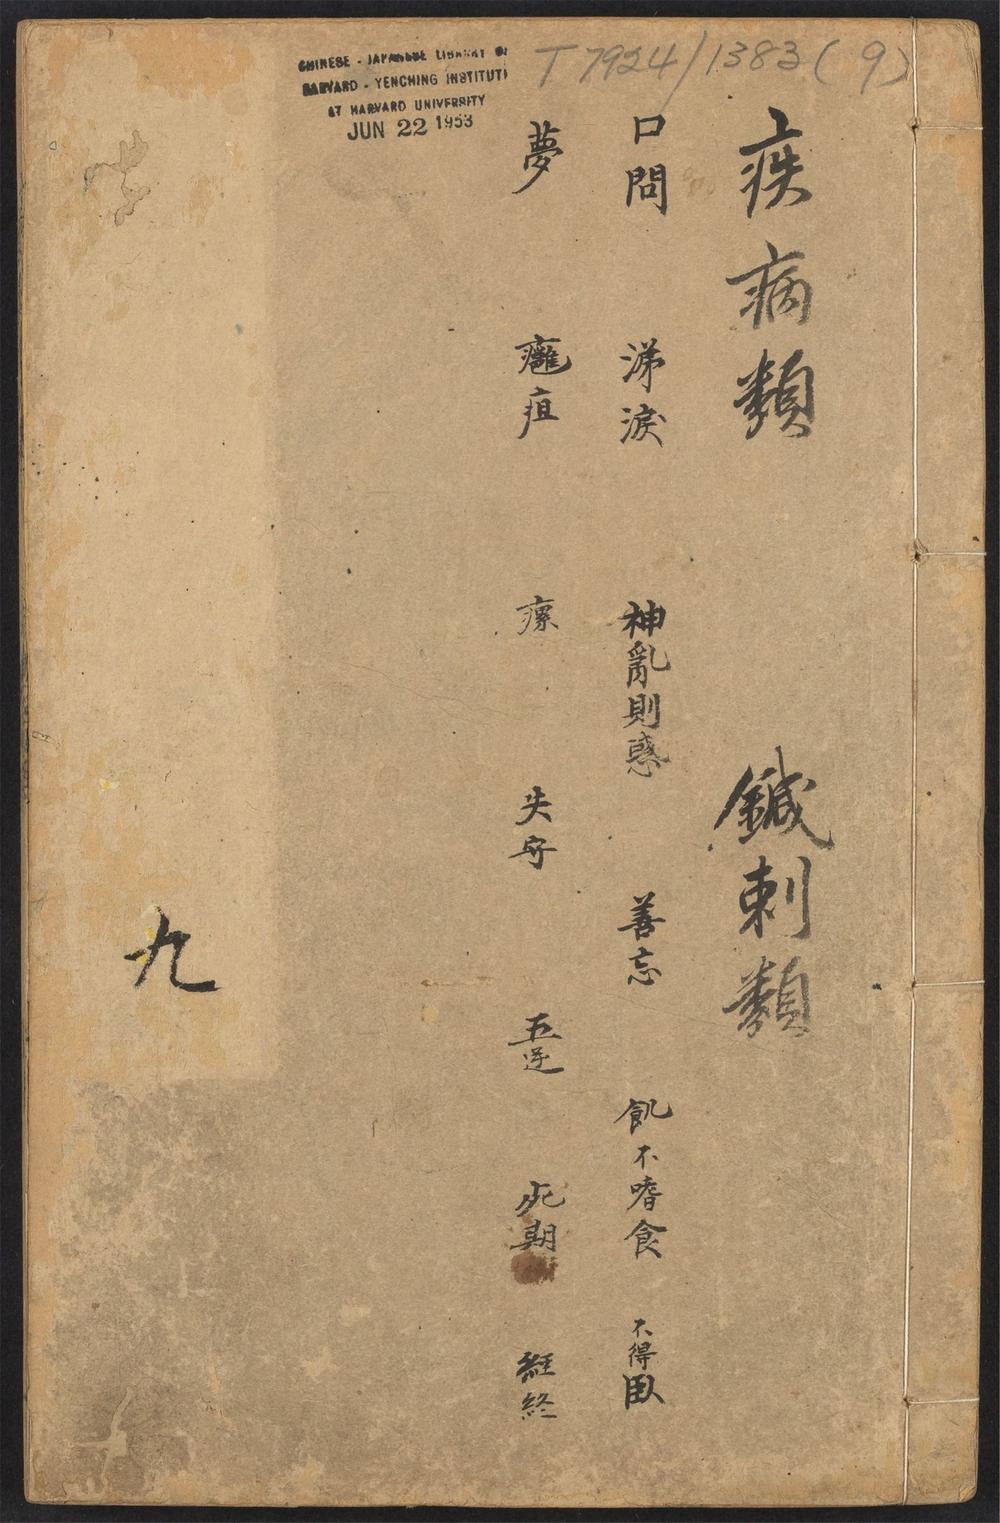 CHINESE - JAPANESE LIBRARY OF
HARVARD - YENCHING INSTITUTE
AT HARVARD UNIVERSITY
JUN 22 1953
T 7924/1383 (9)
疾病類 鍼刺類
口問 涕淚 神亂則惑 善忘 飢不嗜食 不得臥
夢 癰疽 瘰 失守 五逆 死期 經終
九